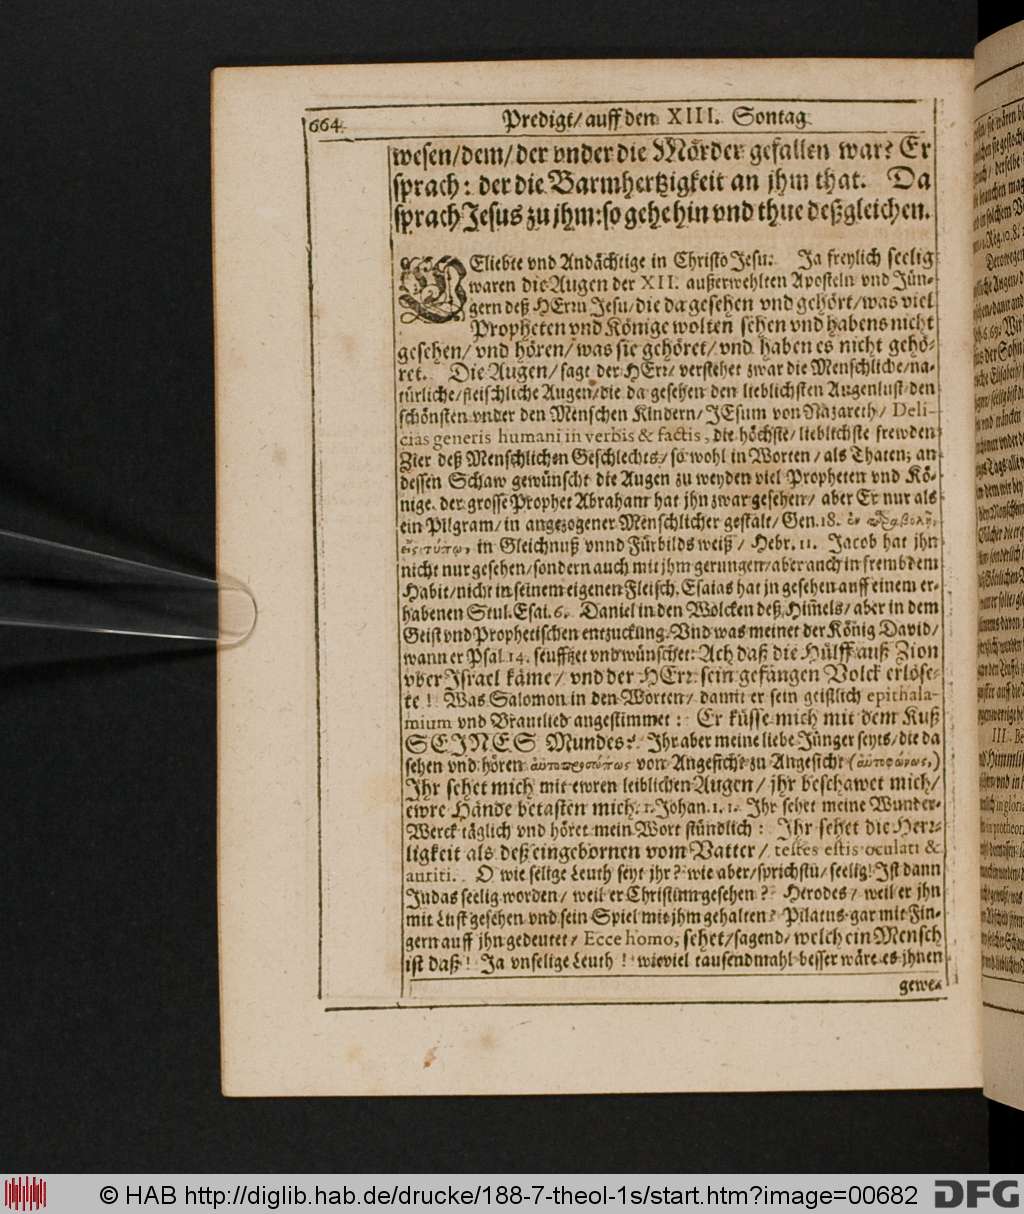 664 Predigt/ auff den XIII. Sontag
wesen/ dem/ der vnder die Mörder gefallen war? Er
sprach: der die Barmhertzigkeit an jhm that. Da
sprach Jesus zu jhm: so gehe hin vnd thue deßgleichen.
GEliebte vnd Andächtige in Christo Jesu: Ja freylich seelig
waren die Augen der XII. außerwehlten Aposteln vnd Jün-
gern deß HErrn Jesu/ die da gesehen vnd gehört/ was viel
Propheten vnd Könige wolten sehen vnd habens nicht
gesehen/ vnd hören/ was sie gehöret/ vnd haben es nicht gehö-
ret. Die Augen/ sagt der HErr/ verstehet zwar die Menschliche/ na-
türliche/ fleischliche Augen/ die da gesehen den lieblichsten Augenlust/ den
schönsten vnder den Menschen Kindern/ JEsum von Nazareth/ Deli-
cias generis humani in verbis & factis, die höchste/ lieblichste frewden
Zier deß Menschlichen Geschlechts/ so wohl in Worten/ als Thaten; an
dessen Schaw gewünscht die Augen zu weyden viel Propheten vnd Kö-
nige. der grosse Prophet Abraham hat jhn zwar gesehen/ aber Er nur als
ein Pilgram/ in angezogener Menschlicher gestalt/ Gen. 18. ἐν παραβολῇ,
εἰς τύπῳ, in Gleichnuß vnnd Fürbilds weiß/ Hebr. 11. Jacob hat jhn
nicht nur gesehen/ sondern auch mit jhm gerungen/ aber auch in frembdem
Habit/ nicht in seinem eigenen Fleisch. Esaias hat jn gesehen auff einem er-
habenen Stul. Esai. 6. Daniel in den Wolcken deß Him̃els/ aber in dem
Geist vnd Prophetischen entzuckung. Vnd was meinet der König David/
wann er Psal 14. seufftzet vnd wünschet: Ach daß die Hülff auß Zion
vber Israel käme/ vnd der HErr sein gefangen Volck erlöse-
te! Was Salomon in den Worten/ damit er sein geistlich epithala-
mium vnd Brautlied angestimmet: Er küsse mich mit dem Kuß
SEINES Mundes? Ihr aber meine liebe Jünger seyts/ die da
sehen vnd hören αὐτοπροσώπως von Angesicht zu Angesicht (αὐτοφώνως,)
Ihr sehet mich mit ewren leiblichen Augen/ jhr beschawet mich/
ewre Hände betasten mich. 1. Johan. 1. 1. Ihr sehet meine Wunder-
Werck täglich vnd höret mein Wort stündlich: Ihr sehet die Herr-
ligkeit als deß eingebornen vom Vatter/ testes estis oculati &
auriti. O wie selige Leuth seyt jhr? wie aber/ sprichstu/ seelig! Ist dann
Judas seelig worden/ weil er Christum gesehen? Herodes/ weil er jhn
mit Lust gesehen vnd sein Spiel mit jhm gehalten? Pilatus gar mit Fin-
gern auff jhn gedeutet/ Ecce homo, sehet/ sagend/ welch ein Mensch
ist daß! Ja vnselige Leuth! wieviel tausendmahl besser wäre es jhnen
gewe-
© HAB http://diglib.hab.de/drucke/188-7-theol-1s/start.htm?image=00682
DFG